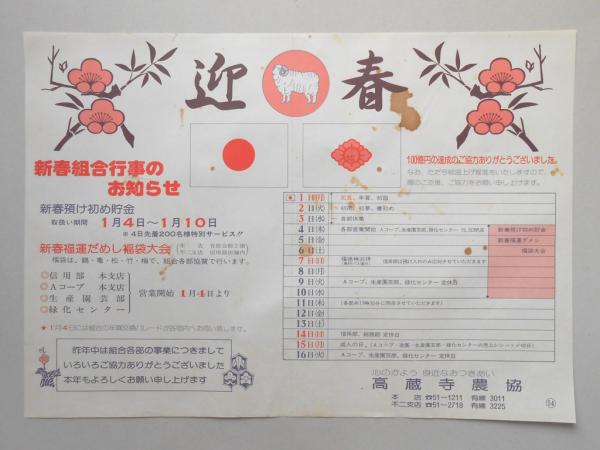 迎春
新春組合行事の
お知らせ
新春預け初め貯金
取扱い期間 1月4日～1月10日
※4日先着200名様特別サービス!!
新春福運だめし福袋大会
福袋は、鶴・亀・松・竹・梅で、組合各部協賛で行います。
◎信用部 本支店
◎Aコープ 本支店
◎生産園芸部
◎緑化センター
営業開始 1月4日より
昨年中は組合各部の事業につきまして
いろいろご協力ありがとうございました
本年もよろしくお願い申し上げます
100億円の達成のご協力ありがとうございました。
1日(月)
2日(火)
3日(水)
4日(木)
5日(金)
6日(土)
7日(日)
8日(月)
9日(火)
10日(水)
11日(木)
12日(金)
13日(土)
14日(日)
15日(月)
16日(火)
新春預け初め貯金
新春福運ダメシ
福袋大会
Aコープ、生産園芸部、緑化センター 定休日
信用部、総務部 定休日
Aコープ、生産園芸部、緑化センター 定休日
心のかよう 身近なおつきあい
高蔵寺農協
本店 ☎51-1211 有線 3011
不二支店 ☎51-2718 有線 3225